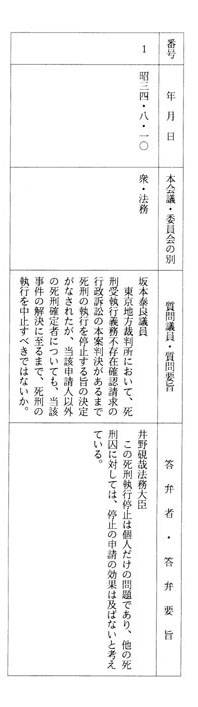 番号
年月日
本会議・委員会の別
質問議員・質問要旨
答弁者・答弁要旨
1
昭三四・八・一〇
衆・法務
坂本泰良議員
東京地方裁判所において、死
刑受執行義務不存在確認請求の
行政訴訟の本案判決があるまで
死刑の執行を停止する旨の決定
がなされたが、当該申請人以外
の死刑確定者についても、当該
事件の解決に至るまで、死刑の
執行を中止すべきではないか。
井野碩哉法務大臣
この死刑執行停止は個人だけの問題であり、他の死
刑囚に対しては、停止の申請の効果は及ばないと考え
ている。